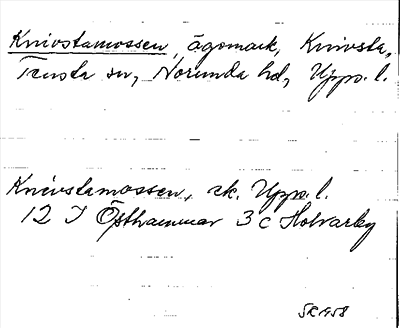 Knivstamossen, ägomark, Knivsta,
Tensta sn, Norunda hd, Upps. l.
Knivstamossen, ek. Upps. l.
12 I Östhammar 3 c Holvarby
SR 1958